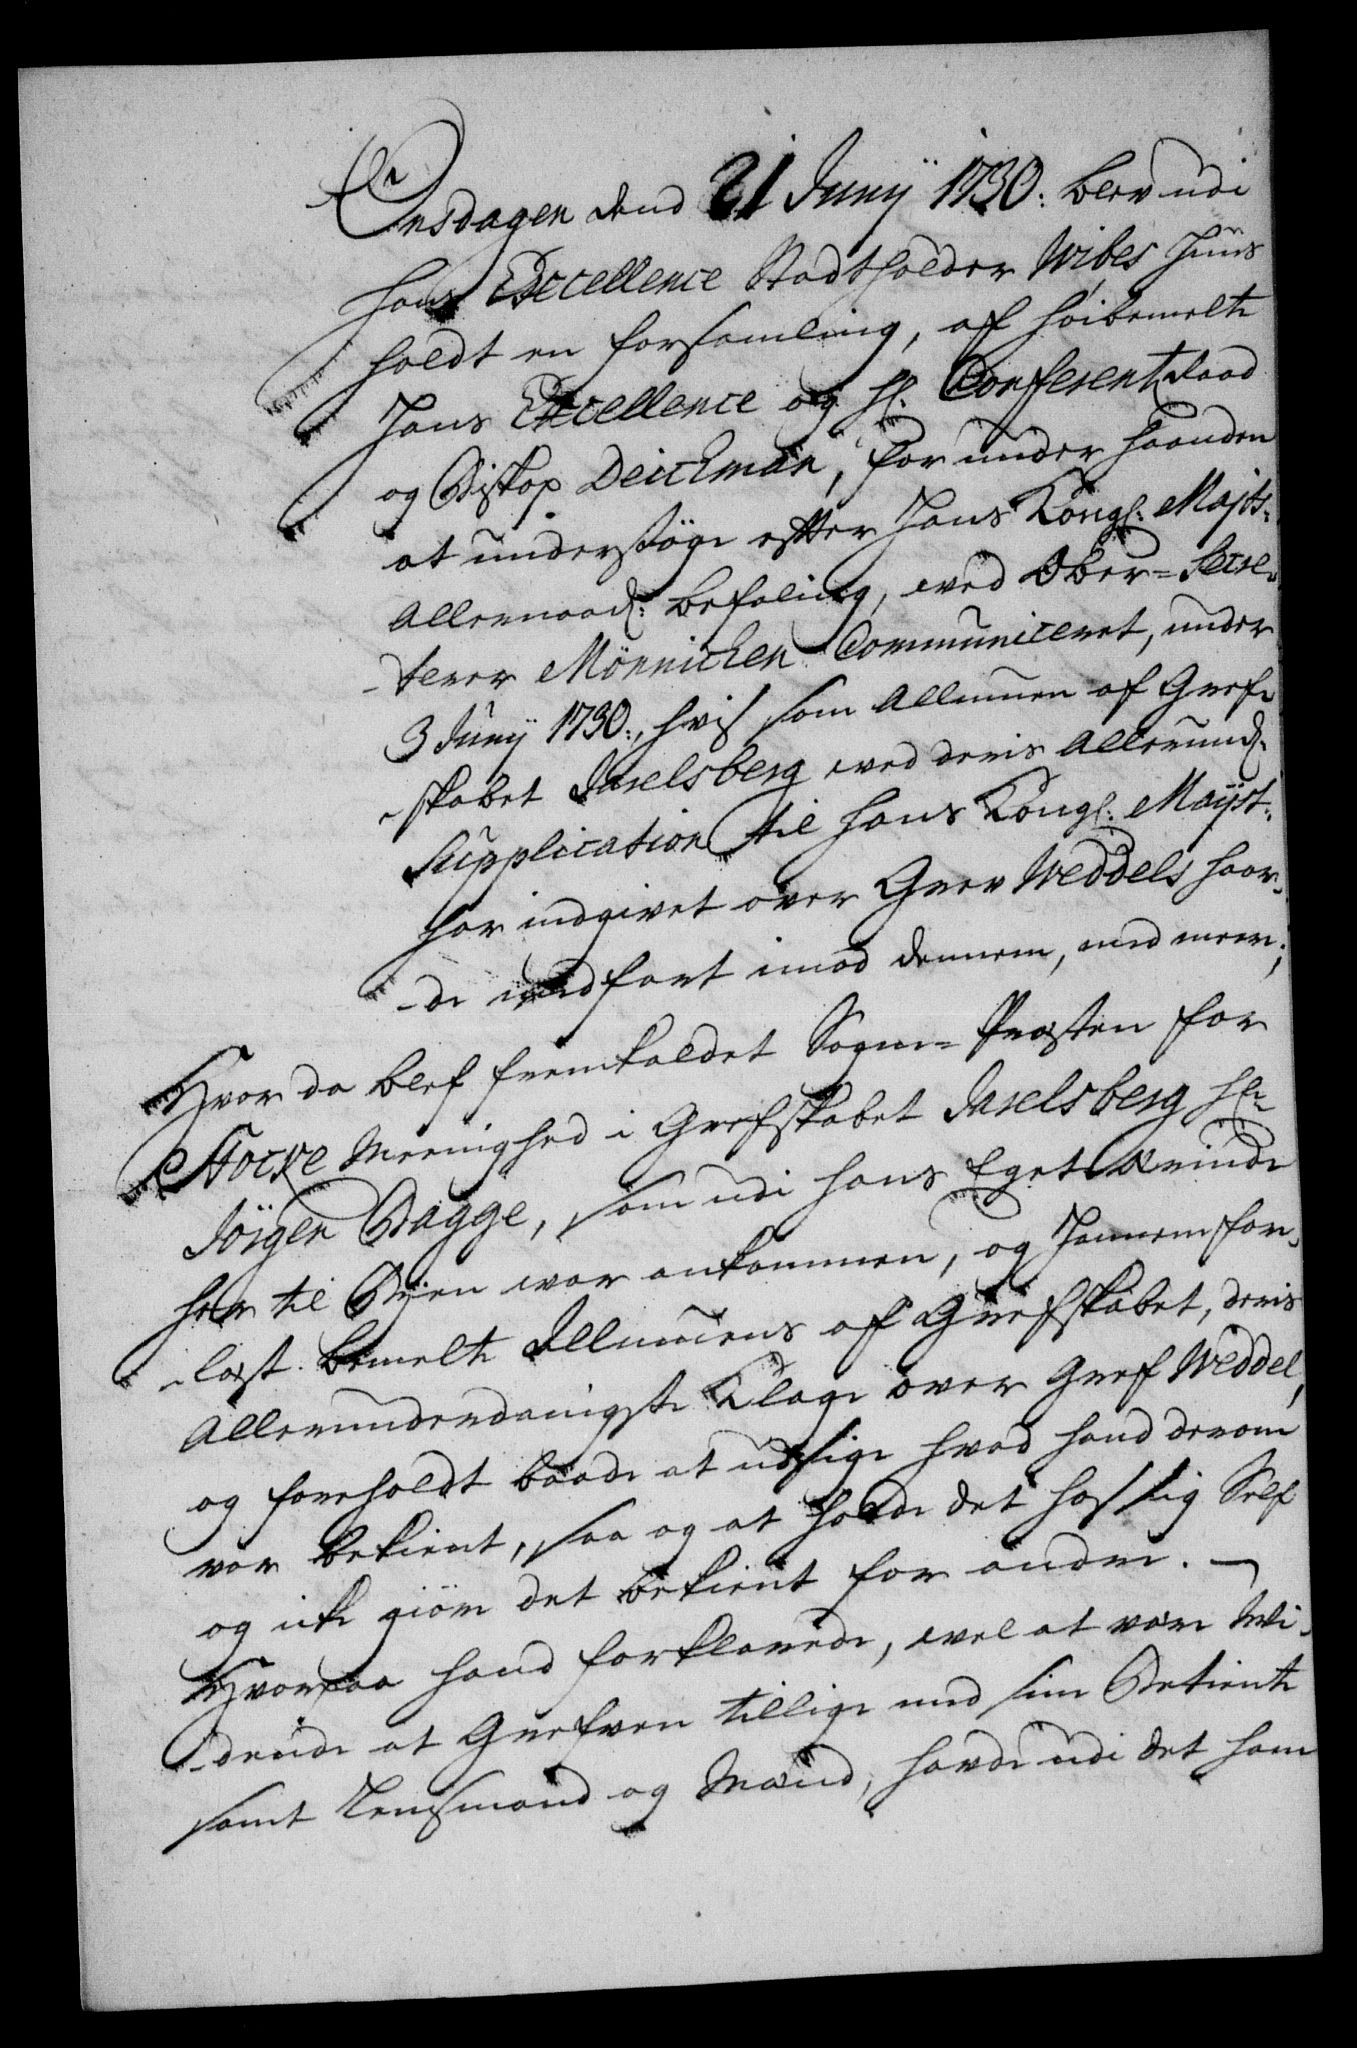 Onsdagen dend 21 Junÿ 1730. blev udi
Hans Excellence Stadtholder Wibes Huus
holdt en forsamling, af høibemelte
Hans Excellence og Hr. Conferentz Raad
og Biskop Deichman, for under haanden
at undersøge efter Hans Kongl. Majts.
Allernaadl. befaling, ved Ober-Secre-
-terer Mönnichen Communiceret, under
3 Junÿ 1730., hvis som Allmuen af Gref-
-skabet Jarelsberg ved deris Allerundl.
Supplication til Hans Kongl. Mayst.
har indgivet over Grev Weddels haar-
-de medfart imod dennem, med meere;
Hvor da blef fremkaldet Sogne-Præsten for
Stocke Meenighed i Grefskabet Jarelsberg Hr.
Jörgen Bagge, som udi hans Eget Ærinde
her til Byen var ankommen, og hannem for-
-læst bemelte Allmuens af Grefskabet, deris
Allerunderdanigste Klage over Gref Weddel,
og foreholdt baade at udsige hvad hand derom
var bekient, saa og at holde det hos sig Self
og icke giöre det bekient for andre. —
Hvorpaa hand forklarede, vel at være Vi-
-dende at Grefven tillige med sine Betiente
samt Lensmand og Mænd, havde udi det ham